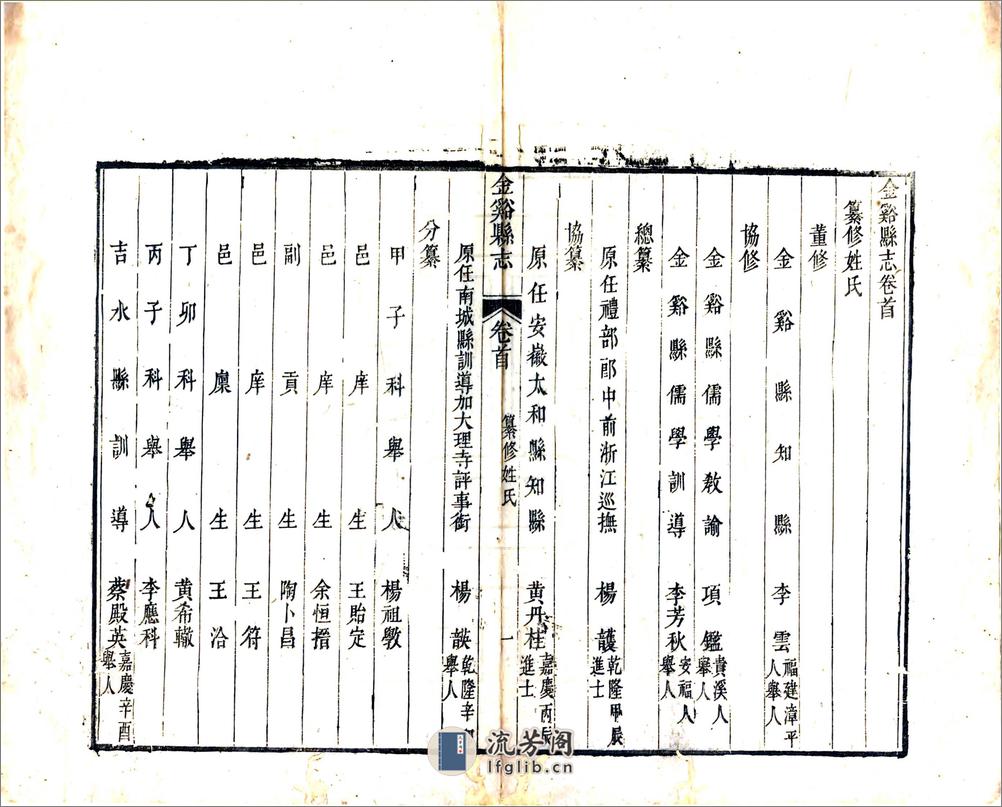 金谿縣志卷首
纂修姓氏
董修
金谿縣知縣 李雲 福建漳平人舉人
協修
金谿縣儒學教諭 項鑑 貴溪人舉人
金谿縣儒學訓導 李芳秋 安福人舉人
總纂
原任禮部郎中前浙江巡撫 楊頀 乾隆甲辰進士
協纂
原任安徽太和縣知縣 黃丹桂 嘉慶丙辰進士
金谿縣志 卷首 纂修姓氏 一
原任南城縣訓導加大理寺評事銜 楊 乾隆辛 舉人
分纂
甲子科舉人 楊祖斅
邑庠生 王貽定
邑庠生 余恒搢
副貢生 陶卜昌
邑庠生 王符
邑廩生 王洽
丁卯科舉人 黃希轍
丙子科舉人 李應科
吉水縣訓導 蔡殿英 嘉慶辛酉舉人
流芳阁
lfglib.cn